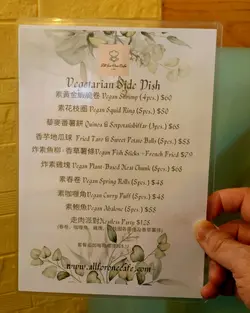 Vegetarian Side Dish
素黃金蝦脆卷 Vegan Shrimp (4pcs.) $60
素花枝圈 Vegan Squid Ring (5pcs.) $50
藜麥番薯餅 Quinoa & Sweetpotato (3pcs.) $65
香芋地瓜球 Fried Taro & Sweet Potato Balls (5pcs.) $55
炸素魚柳・香草薯條 Vegan Fish Sticks・French Fried $79
炸素雞塊 Vegan Plant-Based Neat Chunk (5pcs.) $66
素春卷 Vegan Spring Rolls (5pcs.) $48
素咖喱角 Vegan Curry Puff (4pcs.) $48
素鮑魚 Vegan Abalone (5pcs.) $55
走肉派對 Meatless Party $128
www.allforonecafe.com